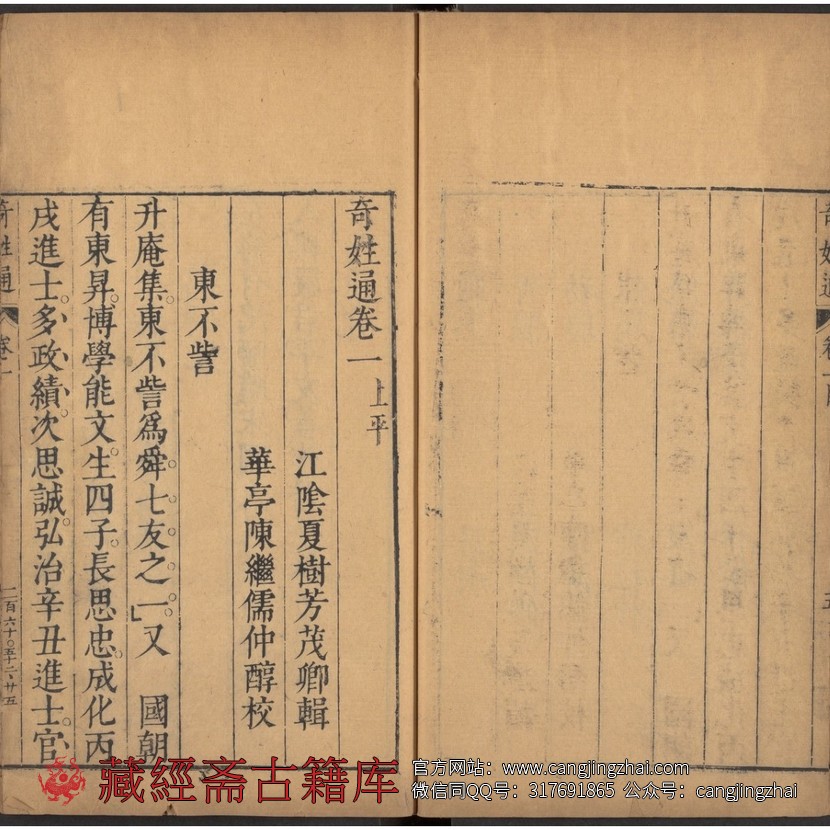 奇姓通卷一 上平
江陰夏樹芳茂卿輯
華亭陳繼儒仲醇校
東不訾
升庵集東不訾爲舜七友之一又 國朝
有東昇博學能文生四子長思忠成化丙
戌進士多政績次思誠弘治辛丑進士官
奇姓通 卷一
藏經斋古籍库
官方网站：www.cangjingzhai.com
微信同QQ号：317691865 公众号：cangjingzhai